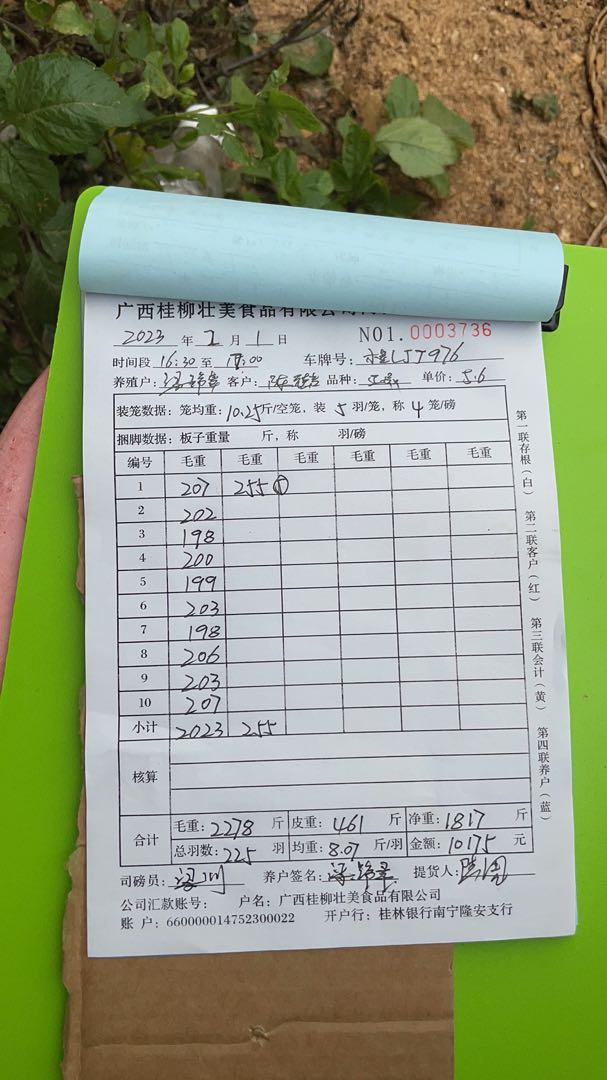 广西桂柳壮美食品有限公司
2023 年 2 月 1 日 NO1.0003736
时间段 16:30 至 17:00 车牌号: LJT976
养殖户: 客户: 品种: 单价: 5.6
装笼数据: 笼均重: 10.25斤/空笼, 装 5 羽/笼, 称 4 笼/磅
捆脚数据: 板子重量 斤, 称 羽/磅
编号 毛重 毛重 毛重 毛重 毛重 毛重
1 207 255 ⑤
2 202
3 198
4 200
5 199
6 203
7 198
8 206
9 203
10 207
小计 2023 255
核算
合计 毛重: 2278 斤 皮重: 461 斤 净重: 1817 斤
总羽数: 225 羽 均重: 8.07 斤/羽 金额: 10175 元
司磅员: 养户签名: 提货人:
公司汇款账号: 户名: 广西桂柳壮美食品有限公司
账 户: 660000014752300022 开户行: 桂林银行南宁隆安支行
第一联存根(白) 第二联客户(红) 第三联会计(黄) 第四联养户(蓝)